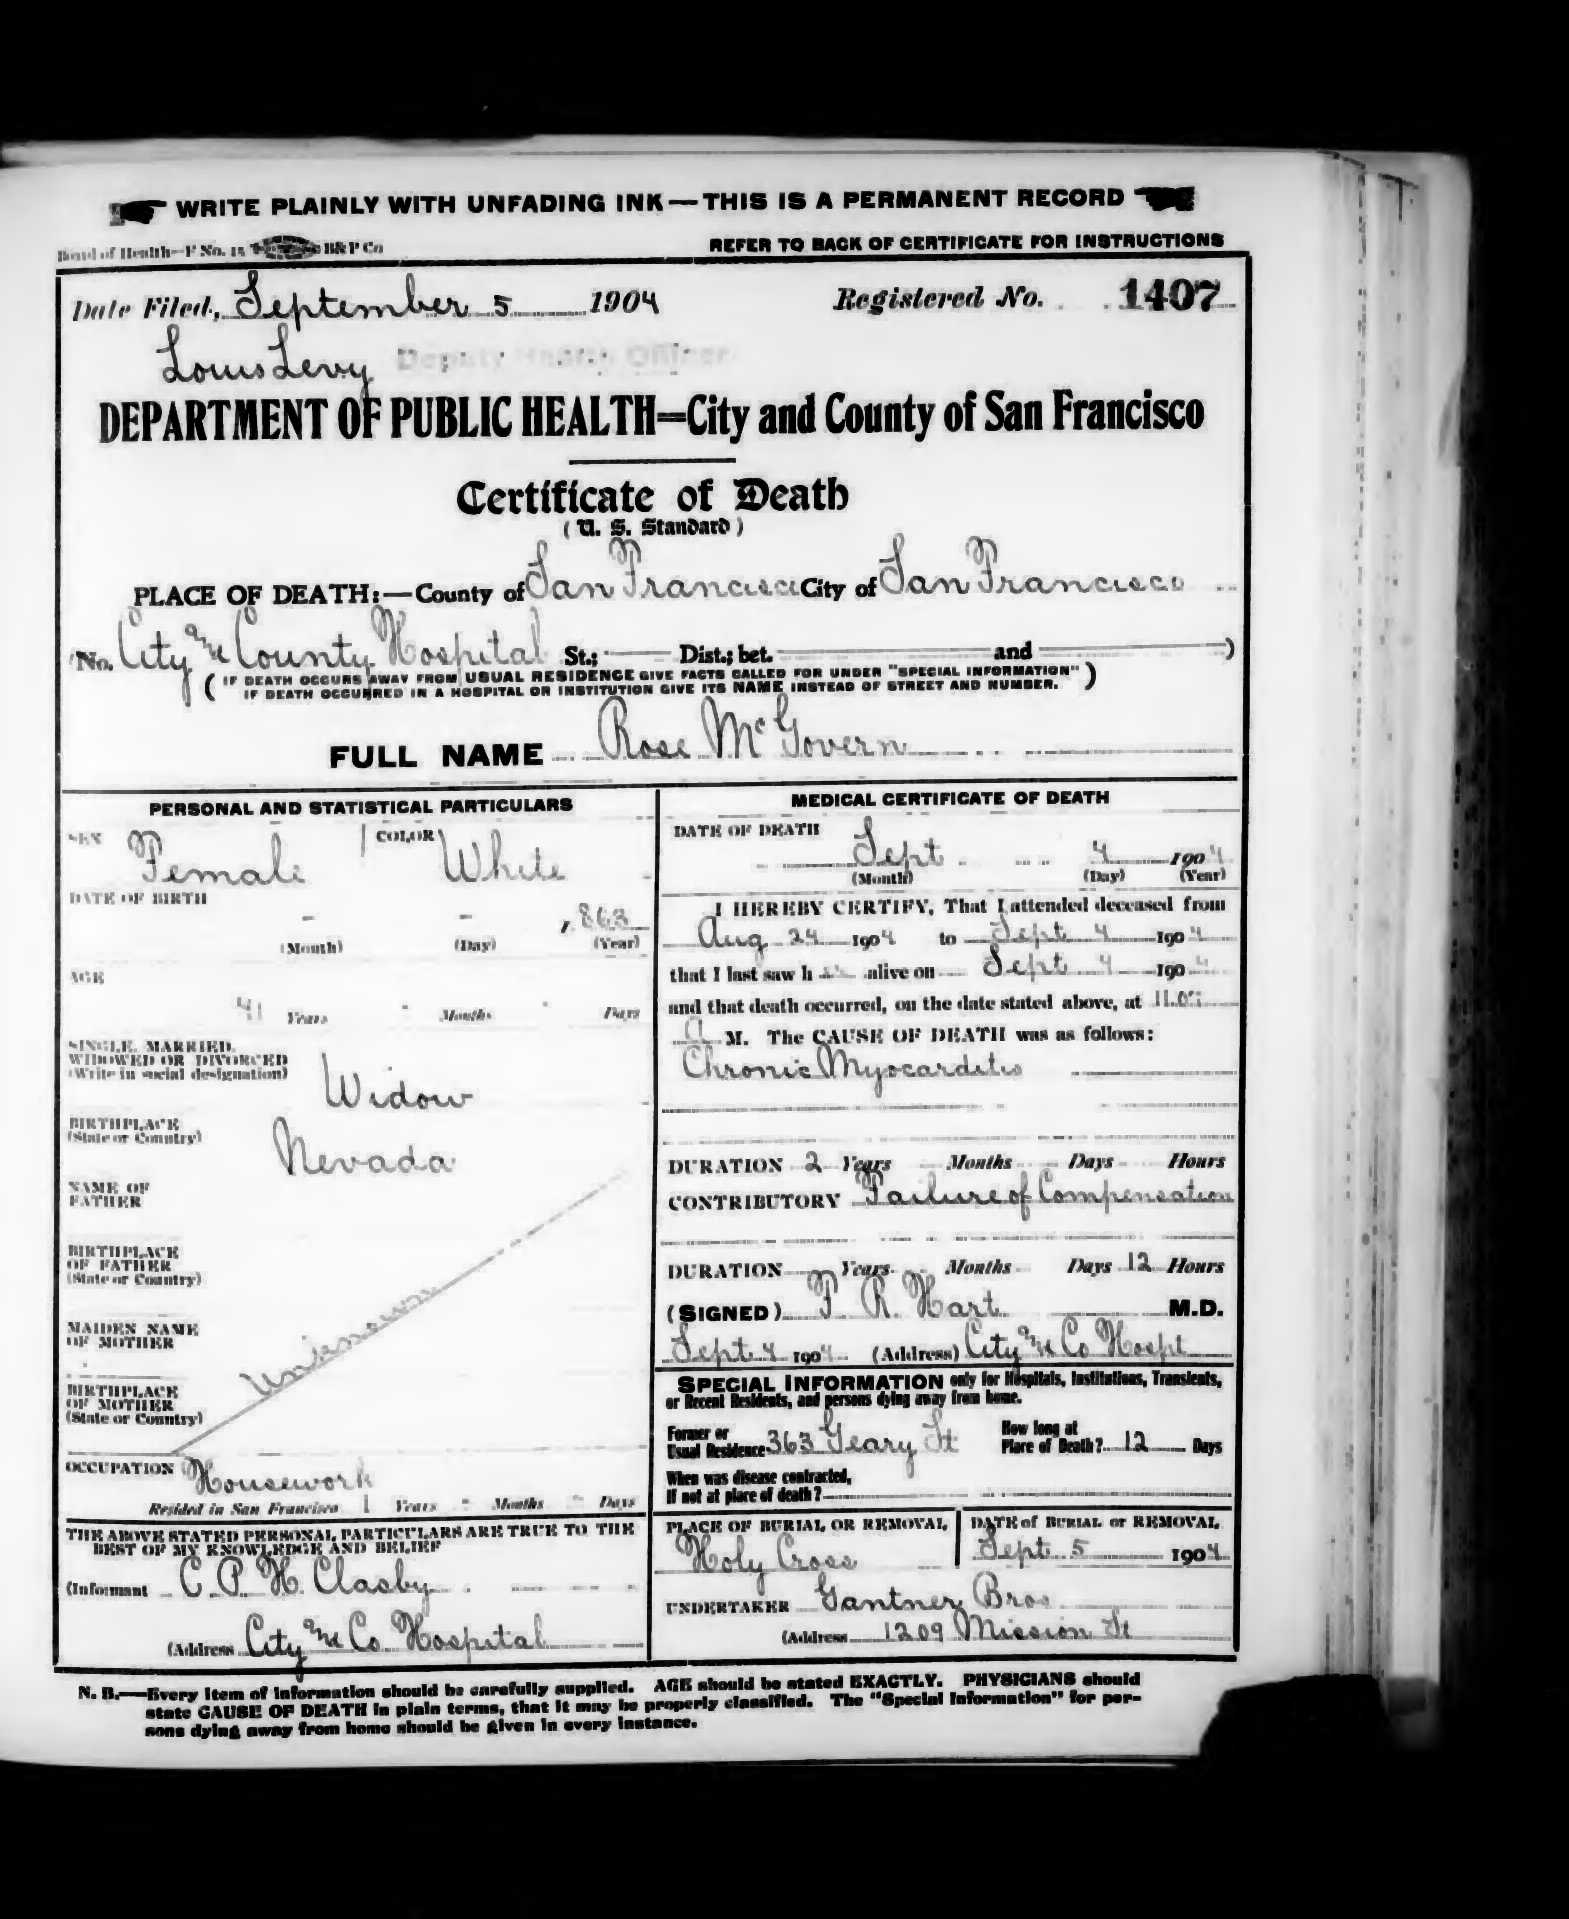 WRITE PLAINLY WITH UNFADING INK—THIS IS A PERMANENT RECORD
Board of Health—F No. 15 B&P Co
REFER TO BACK OF CERTIFICATE FOR INSTRUCTIONS
Date Filed, September 5 1904 Registered No. 1407
Louis Levy Deputy Health Officer
DEPARTMENT OF PUBLIC HEALTH=City and County of San Francisco
Certificate of Death
(U. S. Standard)
PLACE OF DEATH:—County of San Francisco City of San Francisco
(No. City and County Hospital St.; Dist.; bet. and )
(IF DEATH OCCURS AWAY FROM USUAL RESIDENCE GIVE FACTS CALLED FOR UNDER "SPECIAL INFORMATION"
IF DEATH OCCURRED IN A HOSPITAL OR INSTITUTION GIVE ITS NAME INSTEAD OF STREET AND NUMBER.)
FULL NAME Rose McGovern
PERSONAL AND STATISTICAL PARTICULARS
SEX Female COLOR White
DATE OF BIRTH
- - 1863
(Month) (Day) (Year)
AGE
41 Years - Months - Days
SINGLE, MARRIED,
WIDOWED OR DIVORCED
(Write in social designation) Widow
BIRTHPLACE
(State or Country) Nevada
NAME OF
FATHER
BIRTHPLACE
OF FATHER
(State or Country)
Unknown
MAIDEN NAME
OF MOTHER
BIRTHPLACE
OF MOTHER
(State or Country)
OCCUPATION Housework
Resided in San Francisco 1 Years - Months - Days
THE ABOVE STATED PERSONAL PARTICULARS ARE TRUE TO THE
BEST OF MY KNOWLEDGE AND BELIEF
(Informant C. P. H. Clasby
(Address City and Co. Hospital
MEDICAL CERTIFICATE OF DEATH
DATE OF DEATH
Sept 4 1904
(Month) (Day) (Year)
I HEREBY CERTIFY, That I attended deceased from
Aug 24 1904 to Sept 4 1904
that I last saw her alive on Sept 4 1904
and that death occurred, on the date stated above, at
A M. The CAUSE OF DEATH was as follows:
Chronic Myocarditis
DURATION 2 Years Months Days Hours
CONTRIBUTORY Failure of Compensation
DURATION Years Months Days 12 Hours
(SIGNED) F. R. Hart M.D.
Sept 4 1904 (Address) City and Co Hospt
SPECIAL INFORMATION only for Hospitals, Institutions, Transients,
or Recent Residents, and persons dying away from home.
Former or
Usual Residence 363 Geary St
How long at
Place of Death? 12 Days
When was disease contracted,
If not at place of death?
PLACE OF BURIAL OR REMOVAL
Holy Cross
DATE of BURIAL or REMOVAL
Sept 5 1904
UNDERTAKER Gantner Bros
(Address 1209 Mission St
N. B.—Every item of information should be carefully supplied. AGE should be stated EXACTLY. PHYSICIANS should
state CAUSE OF DEATH in plain terms, that it may be properly classified. The "Special Information" for per-
sons dying away from home should be given in every instance.